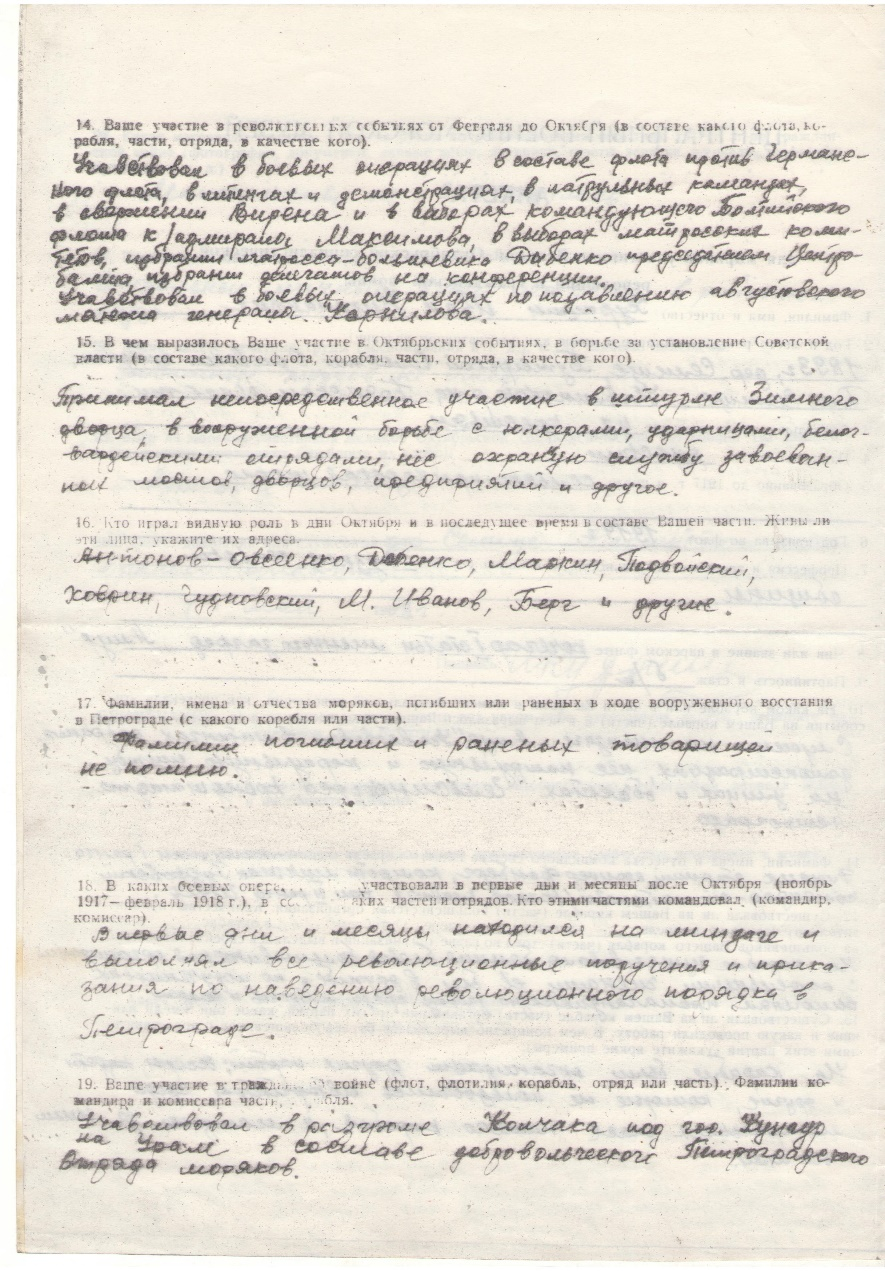 14. Ваше участие в революционных событиях от Февраля до Октября (в составе какого флота, ко-
рабля, части, отряда, в качестве кого).
Учавствовал в боевых операциях в составе флота против Германс-
кого флота, в митингах и демонстрациях, в патрульных командах,
в свержении Вирена и в выборах командующего Балтийского
флота к/адмирала Максимова, в выборах матросских коми-
тетов, избрании матросса-большевика Дыбенко председателем Центро-
балта, избрании делегатов на конференции.
Учавствовал в боевых операциях по подавлению августовского
мятежа генерала Корнилова.
15. В чем выразилось Ваше участие в Октябрьских событиях, в борьбе за установление Советской
власти (в составе какого флота, корабля, части, отряда, в качестве кого).
Принимал непосредственное участие в штурме Зимнего
дворца, в вооруженной борьбе с юнкерами, ударницами, белог-
вардейскими отрядами, нёс охранную службу завоеван-
ных мостов, дворцов, предприятий и другое.
16. Кто играл видную роль в дни Октября и в последущее время в составе Вашей части. Живы ли
эти лица, укажите их адреса.
Антонов-Овсеенко, Дыбенко, Маркин, Подвойский,
Ховрин, Чудновский, М. Иванов, Берг и другие.
17. Фамилии, имена и отчества моряков, погибших или раненых в ходе вооруженного восстания
в Петрограде (с какого корабля или части).
Фамилии погибших и раненых товарищей
не помню.
18. В каких боевых опера участвовали в первые дни и месяцы после Октября (ноябрь
1917—февраль 1918 г.), в со аких частей и отрядов. Кто этими частями командовал, (командир,
комиссар).
В первые дни и месяцы находился на миндаге и
выполнял все революционные поручения и прика-
зания по наведению революционного порядка в
Петрограде.
19. Ваше участие в гражданской войне (флот, флотилия, корабль, отряд или часть). Фамилии ко-
мандира и комиссара части, рабля.
Учавствовал в разгроме Колчака под гор. Кунгур
на Урале в составе добровольческого Петроградского
Отряда моряков.